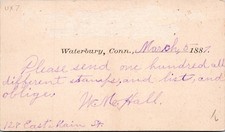 Waterbury, Conn., March 3 1887.
Please send one hundred all
different stamps, and lists, and
oblige,
W. M. Hall.
128 East Main St